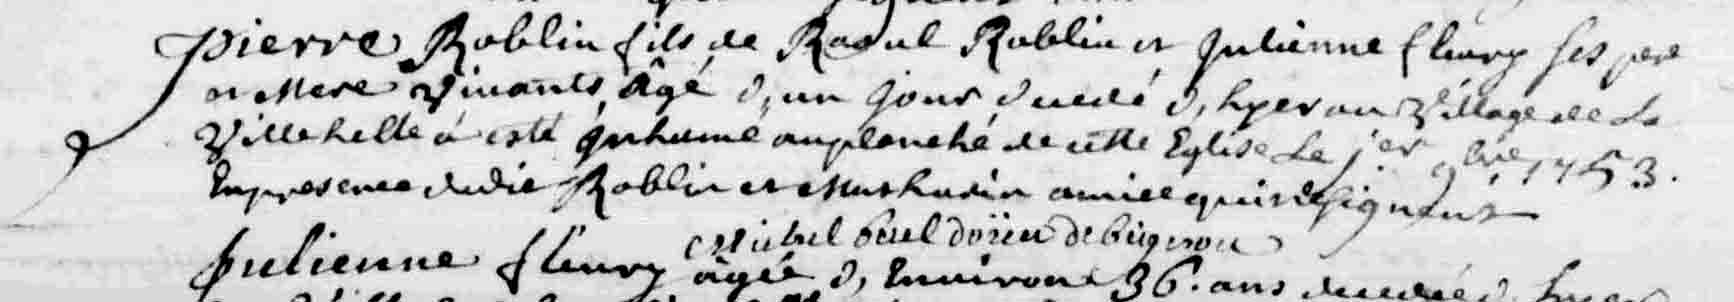 Pierre Roblin fils de Raoul Roblin et Julienne fleury ses pere
et Mere Vivants, âgé d, un Jour decedé d, hyer au Village de La
Ville helle á esté Jnhumé au planché de cette Eglise Le j.er 9bre 1753.
En presence dudit Roblin et Mathurin qui ne signent
Michel doïen de
Julienne fleury âgée d, Environ 36. ans decedée d, hyer